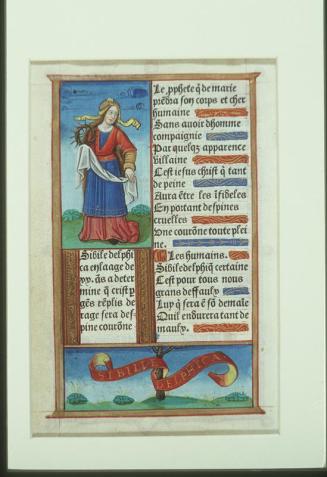 Le pphete q̄ de marie
prēdra son corps et cher
humaine
Sans auoir dhomme
compaignie
Par quelqz apparence
villaine
Cest iesus christ q̄ tant
de peine
Aura ētre les īfideles
En portant despines
cruelles
Vne courōne toute plei
ne.
Les humains.
Sibile delphiq̄ certaine
Cest pour tous nous
grans deffaulx
Luy q̄ sera ē sō demale
Quil endurera tant de
maulx.
Sibile delphi
ca en laage de
xx. ās a deter
mine q̄ crist p
gēs rēplis de
rage sera des-
pine courōne
SIBILLE DELPHICA